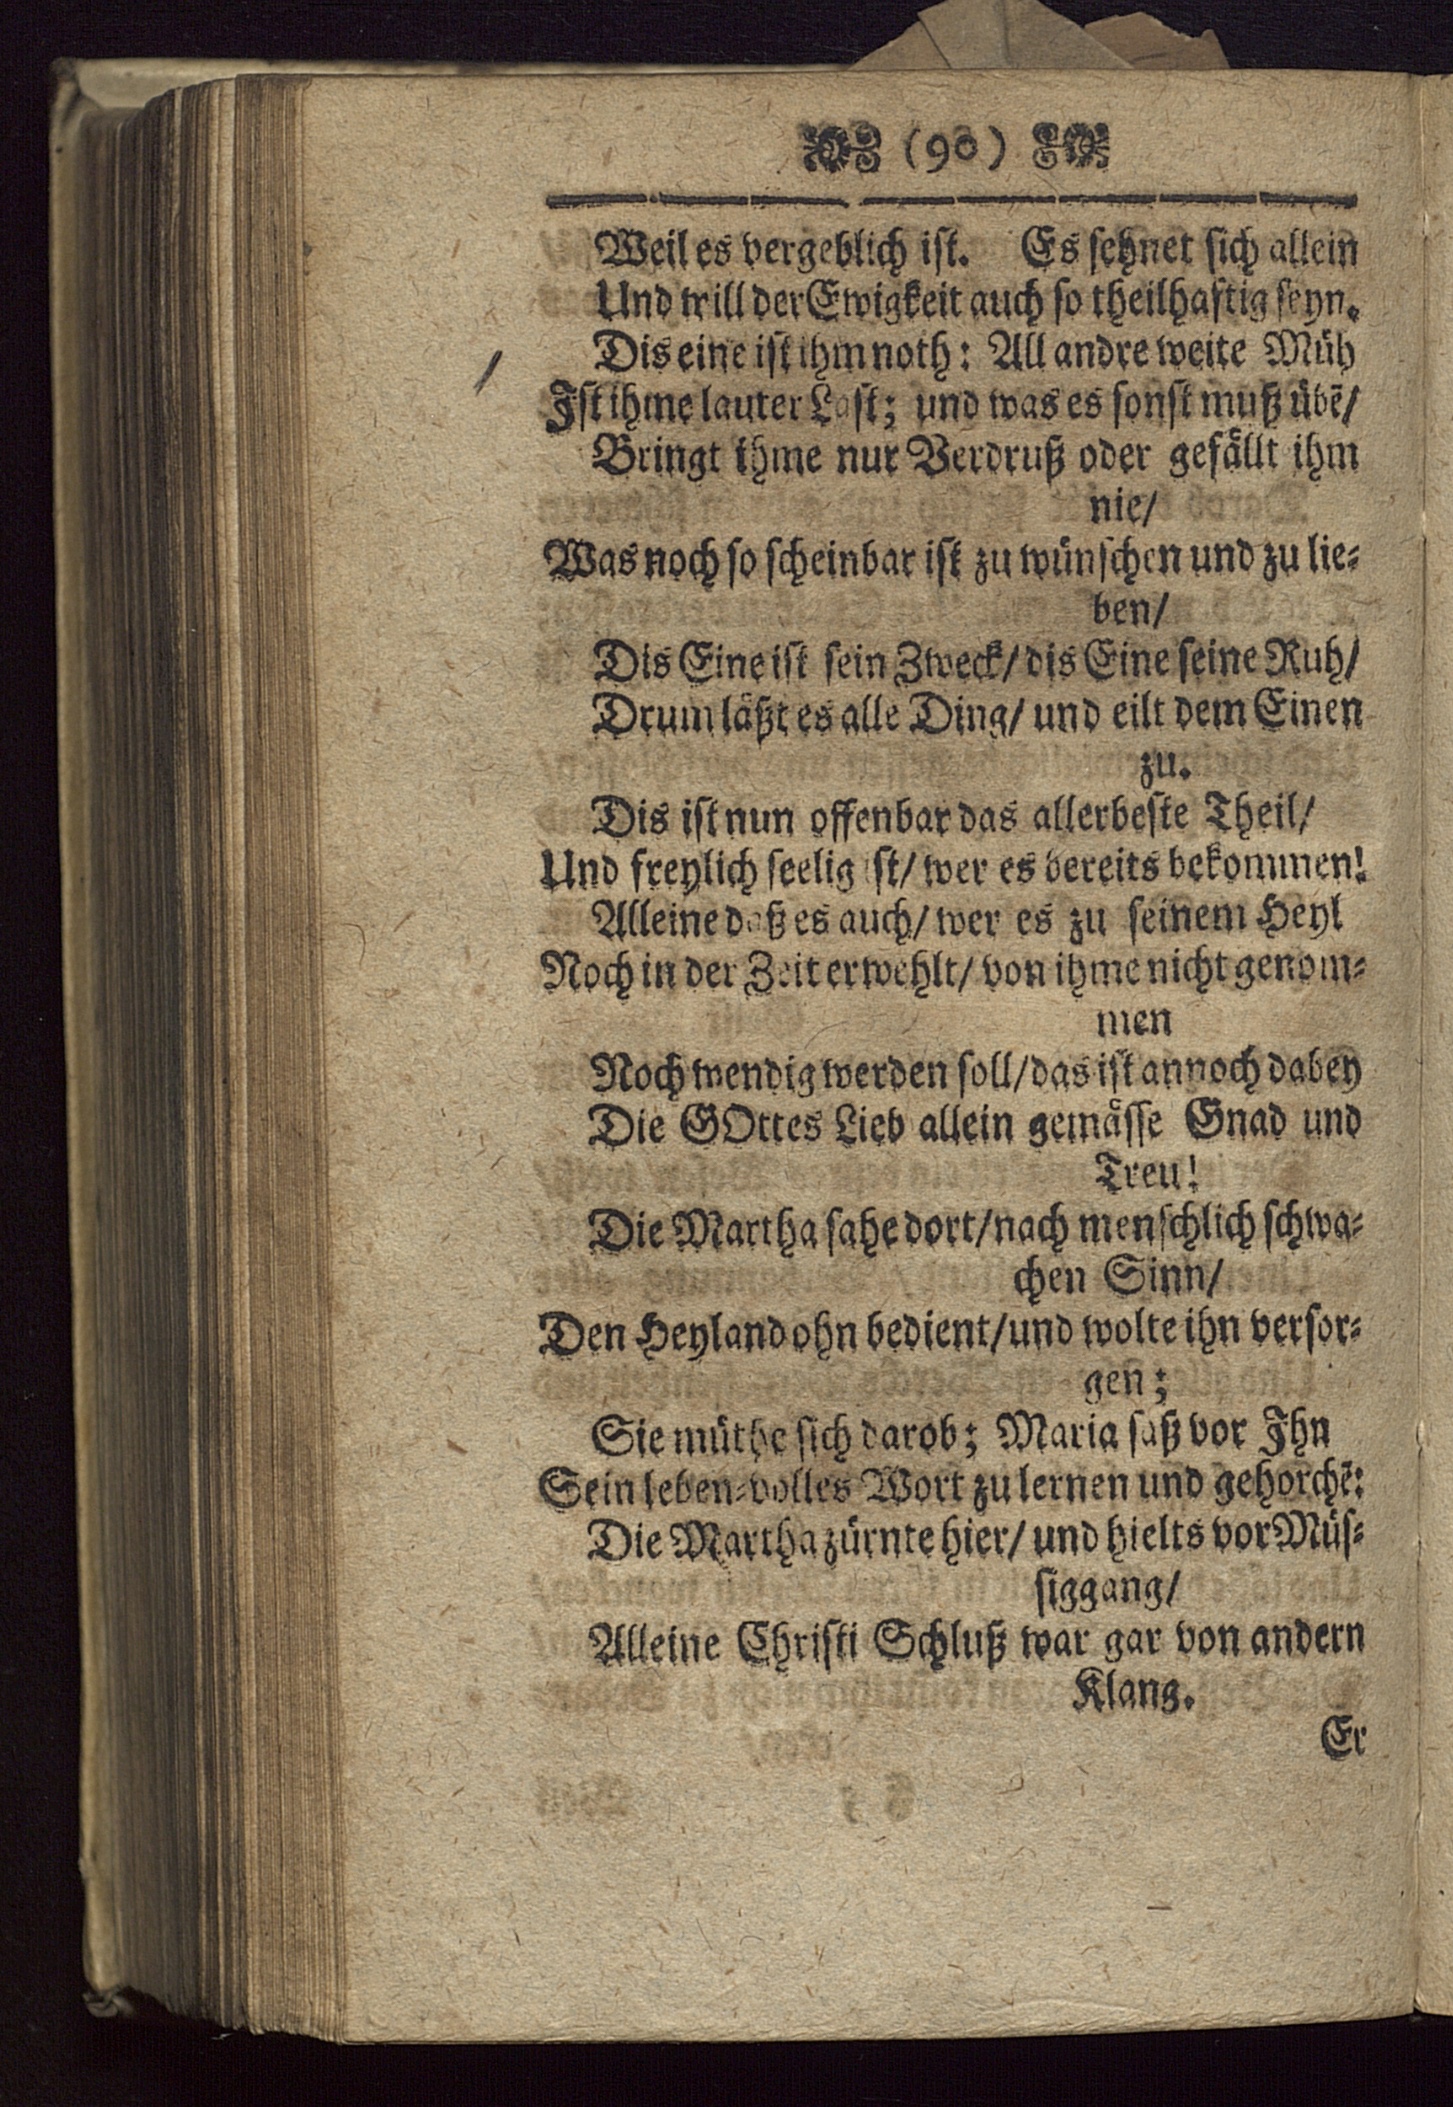 (90)
Weil es vergeblich ist. Es sehnet sich allein
Und will der Ewigkeit auch so theilhaftig seyn.
Dis eine ist ihm noth: All andre weite Müh
Ist ihme lauter Last; und was es sonst muß übē/
Bringt ihme nur Verdruß oder gefällt ihm
nie/
Was noch so scheinbar ist zu wünschen und zu lie-
ben/
Dis Eine ist sein Zweck/ dis Eine seine Ruh/
Drum läßt es alle Ding/ und eilt dem Einen
zu.
Dis ist nun offenbar das allerbeste Theil/
Und freylich seelig ist/ wer es bereits bekommen!
Alleine daß es auch/ wer es zu seinem Heyl
Noch in der Zeit erwehlt/ von ihme nicht genom-
men
Noch wendig werden soll/ das ist annoch dabey
Die GOttes Lieb allein gemässe Gnad und
Treu!
Die Martha sahe dort/ nach menschlich schwa-
chen Sinn/
Den Heyland ohn bedient/ und wolte ihn versor-
gen;
Sie müthe sich darob; Maria saß vor Ihn
Sein leben-volles Wort zu lernen und gehorchē:
Die Martha zürnte hier/ und hielts vor Müs-
siggang/
Alleine Christi Schluß war gar von andern
Klang.
Er